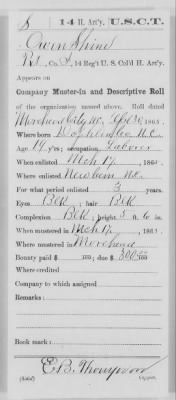 S | 14 H. Art'y. | U.S.C.T.
Owen Shine
Pvt., Co. A, 14 Reg't U. S. Col'd H. Art'y.
Appears on
Company Muster-in and Descriptive Roll
of the organization named above. Roll dated
Morehead City N.C., 186 .
Where born Duplin Co N.C.
Age 19 y'rs; occupation Laborer
When enlisted Mch 17, 186 .
Where enlisted Newbern N.C.
For what period enlisted 3 years.
Eyes Blk; hair Blk
Complexion Blk; height 5 ft. 6 in.
When mustered in Mch 17, 186 .
Where mustered in Morehead
Bounty paid $ ; due $ 300
Where credited
Company to which assigned
Remarks:
Book mark:
E B Thompson
(342) Copyist.